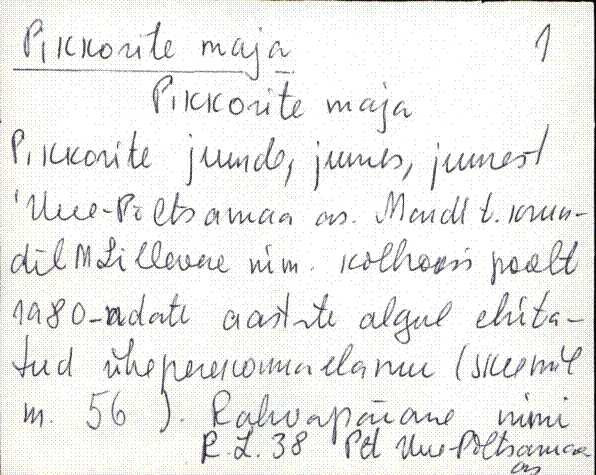 Pikkorite maja 1
Pikkorite maja
Pikkorite juurde, juures, juurest
'Uue-Põltsamaa as. Mardi t. krun-
dil M Lillevere nim. kolhoosi poolt
1980-ndate aastate algul ehita-
tud üheperekonnaelamu (skeemil
nr. 56 ). Rahvapärane nimi
R.L. 38 Plt Uue-Põltsamaa
as